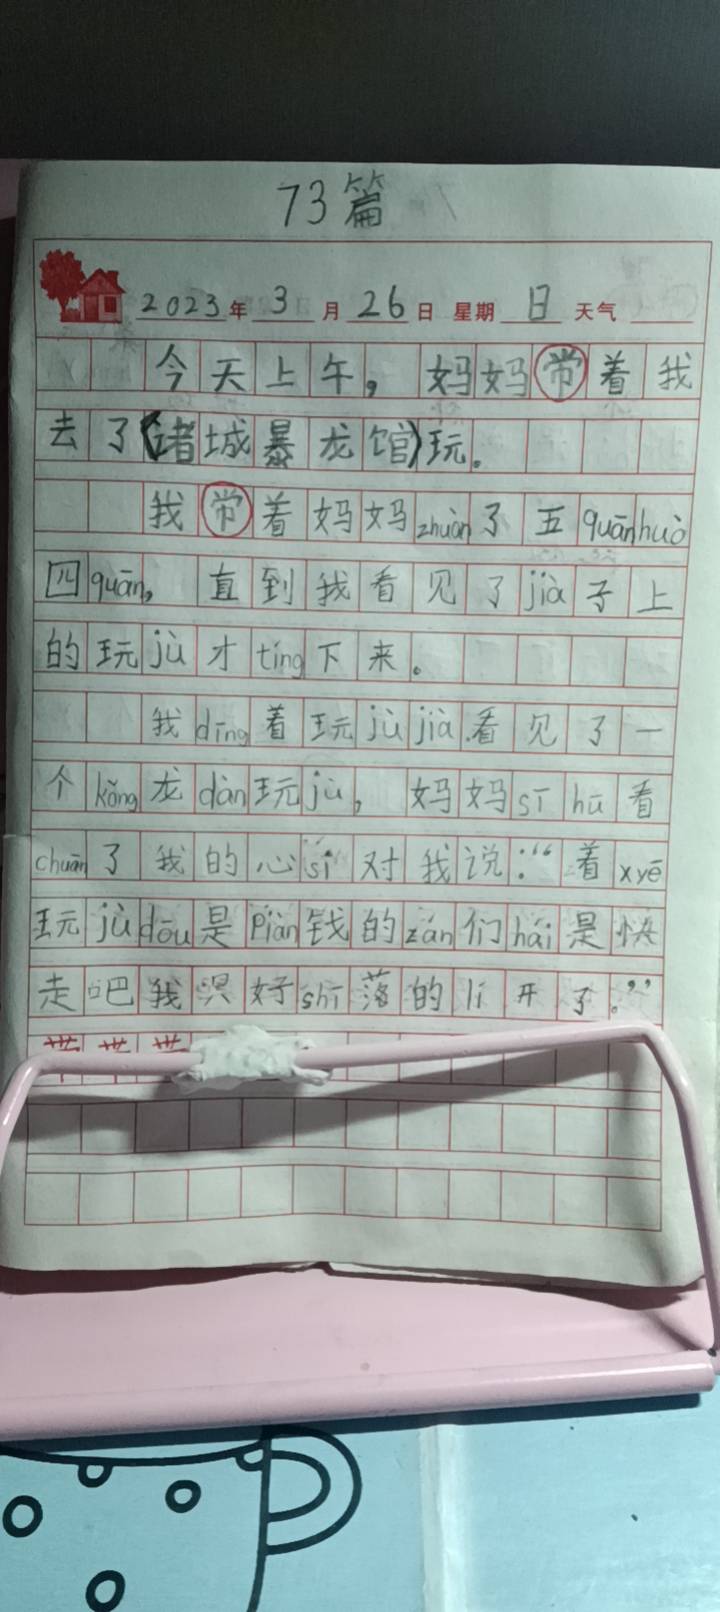 73篇
2023年3月26日 星期日 天气
今天上午，妈妈常着我
去了《诸城暴龙馆》玩。
我常着妈妈zhuàn了五quānhuò
四quān，直到我看见了jià子上
的玩jù才tíng下来。
我dīng着玩jùjià看见了一
个kǒng龙dàn玩jù，妈妈sīhū看
chuān了我的心sī对我说：“着xyē
玩jùdōu是piàn钱的zán们hái是快
走吧我只好shī落的lí开了。”
带带带